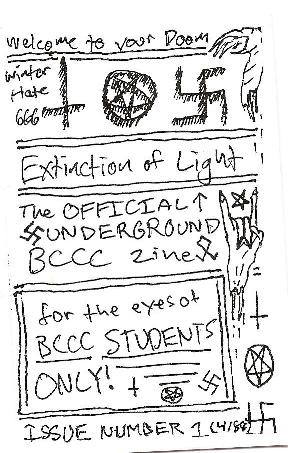 Welcome to your Doom
Winter
Hate
666
Extinction of Light
The OFFICIAL
UNDERGROUND
BCCC Zine
for the eyes of
BCCC STUDENTS
ONLY!
ISSUE NUMBER 1